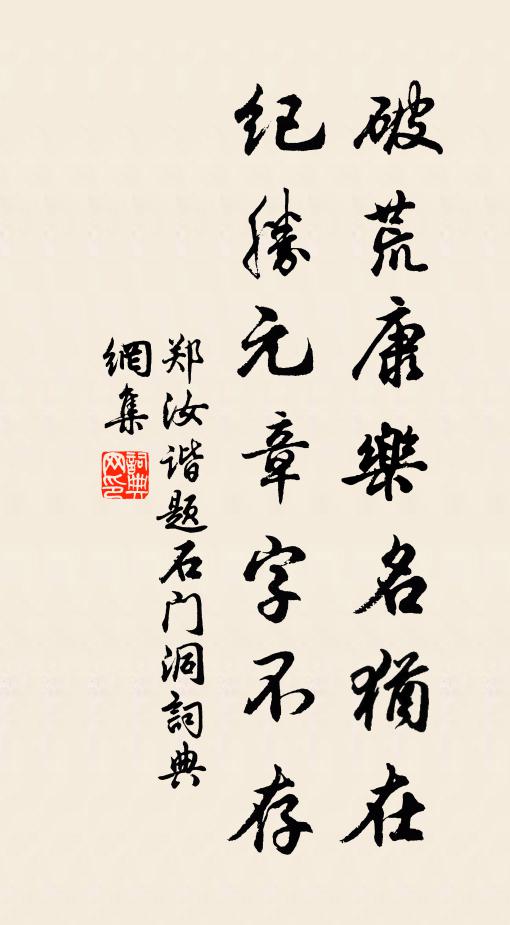 破荒康樂名猶在
紀勝元章字不存
郑汝谐题石门洞詞典
網集
詞典網印